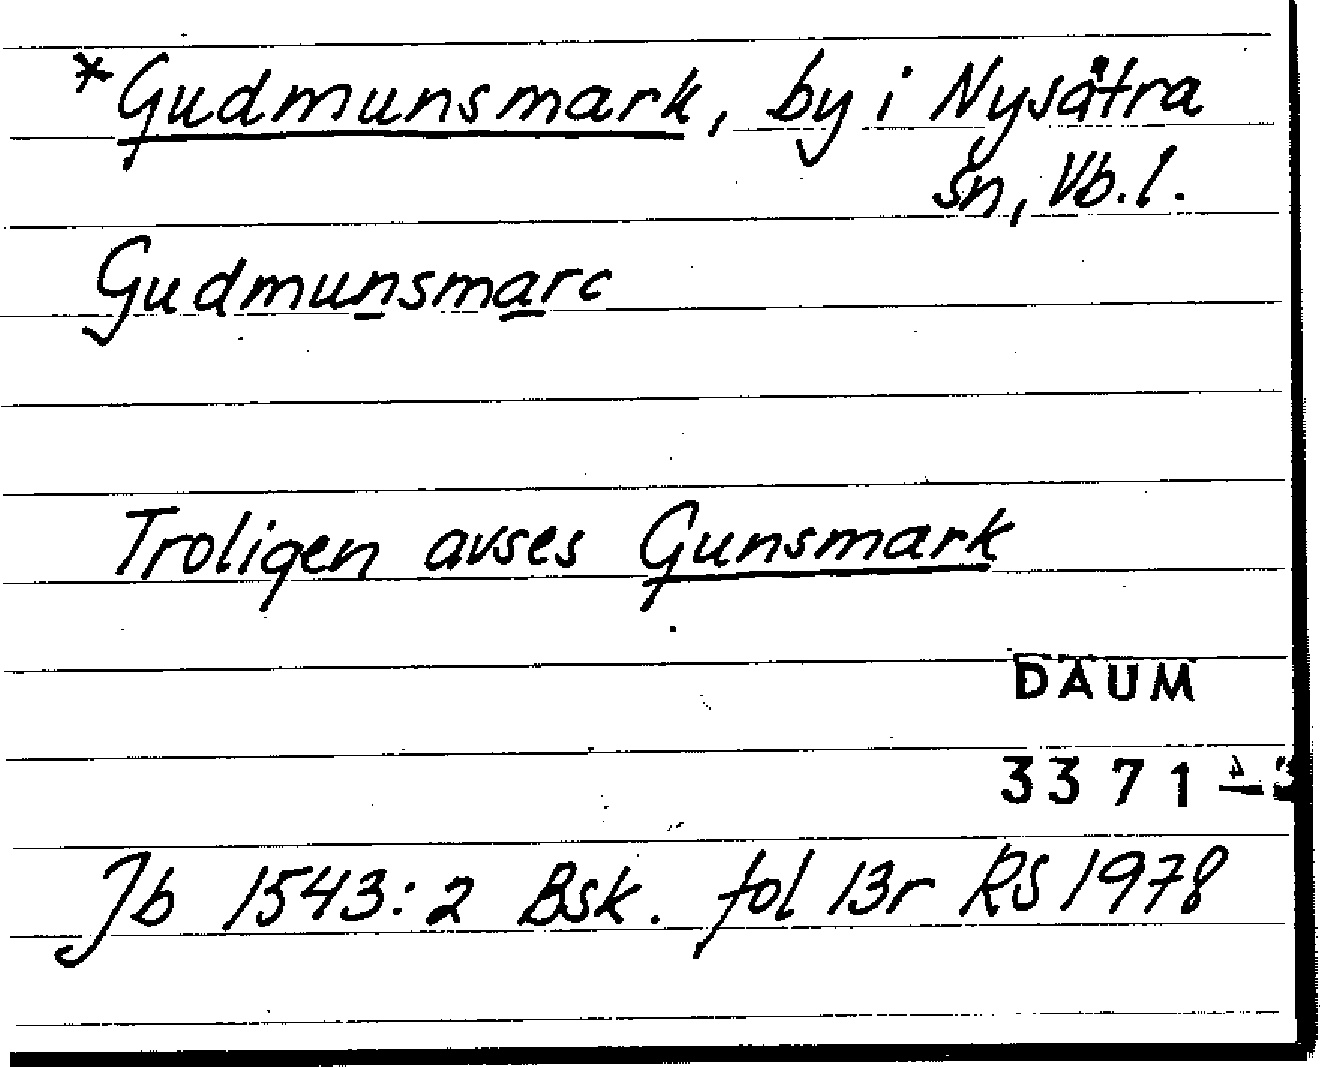 *Gudmunsmark, by i Nysätra
sn, Vb.l.
Gudmunsmarc
Troligen avses Gunsmark
DAUM
3371
Jb 1543:2 Bsk. fol 13r RS 1978